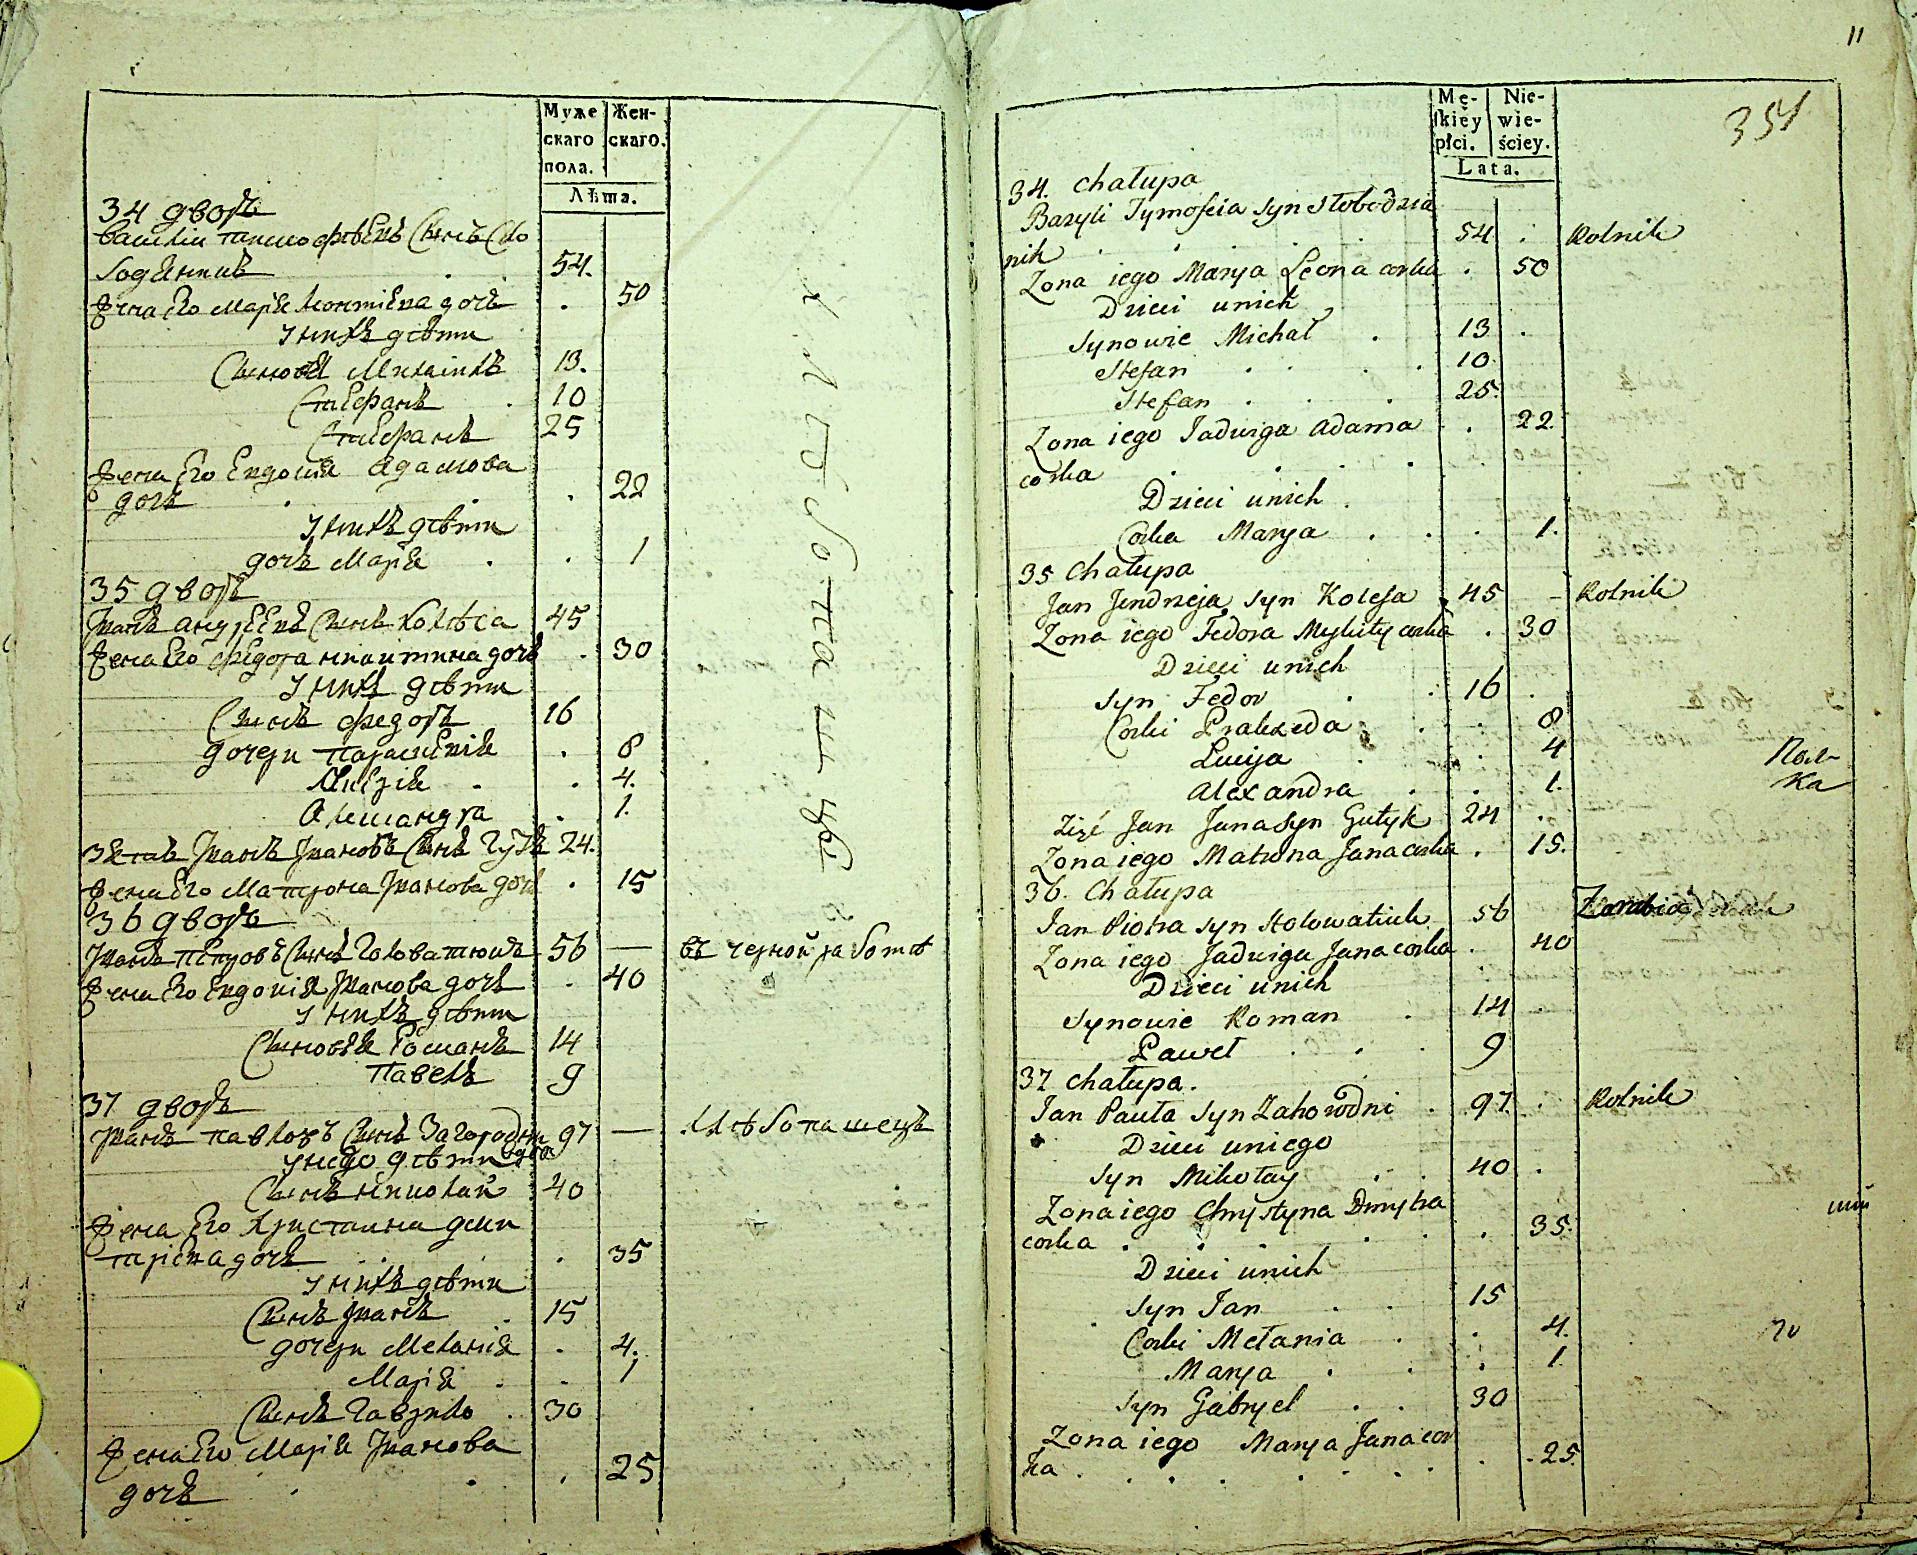 Муже
скаго
пола.
Жен-
скаго.
Лѣта.
34 дворъ
Василій тимофѣевъ Сынъ Сло
бодяникъ . . 54.
Жена Его Марія Леонтіева дочь . 50
У нихъ дѣти
Сыновья Михаилъ 13.
Стефанъ . 10
Стефанъ 25
Жена Его Евдокія Адамова
дочь . . . 22
У нихъ дѣти
дочь Марія . . 1
35 дворъ
Иванъ андреевъ Сынъ Колѣса 45
Жена Его Федора никитина дочь . 30
У нихъ дѣти
Сынъ Федоръ 16
дочери Параскевія . 8
Лукерія . . 4.
Александра . 1.
Зять Иванъ Ивановъ Сынъ 24.
Жена Его Матрона Иванова дочь . 15
Хлѣбопашцы
36 дворъ
Иванъ Петровъ Сынъ Головатюкъ 56 — въ черной работѣ
Жена Его Евдокія Иванова дочь . 40
У нихъ дѣти
Сыновья Романъ 14
Павелъ 9
37 дворъ
Иванъ павловъ Сынъ Загородни 97 — Хлѣбопашецъ
у него дѣти
Сынъ николай 40
Жена Его Христина дми
тріева дочь . . . 35
У нихъ дѣти
Сынъ Иванъ . 15
дочери Меланія . 4.
Марія . . 1
Сынъ Гаврило . 30
Жена Его Марія Иванова
дочь . . . 25
11
354
Mę-
skiéy
płci.
Nie-
wie-
ściey.
Lata.
34. Chałupa
Bazyli Tymofeia syn Słobodzia
nik . . 54 . Rolnik
Zona iego Marya Leona corka . 50
Dzieci unich
Synowie Michał . 13 .
Stefan . . . . 10
Stefan . . 25.
Zona iego Jadwiga Adama . 22
corka . . . .
Dzieci unich .
Corka Marya . . . 1.
35 Chałupa
Jan Jendrzeja syn Kolesa 45 - Rolnik
Zona iego Fedora Mykity corka . 30
Dzieci unich
Syn Fedor . . 16 .
Corki Praxeda . . 8
Lucija . . 4
Alexandra . . 1.
Поль
ка
Zięć Jan Jana syn Gutyk 24 .
Zona iego Matrona Jana corka . 15.
36. Chałupa
Jan Piotra syn Hołowatiuk 56
Zona iego Jadwiga Jana corka . 40
Dzieci unich
Synowie Roman . 14
Paweł . . . 9
37 Chałupa.
Jan Pauła syn Zahorodni . 97 . Rolnik
Dzieci uniego
Syn Mikołay . . 40 .
Zona iego Chrystyna Dmytra
corka . . . . . . 35.
Dzieci unich
Syn Jan . . 15
Corki Mełania . . 4.
Marya . . . 1
Syn Gabryel . . 30
Zona iego Marya Jana cor
ka . . . . . . . . 25.